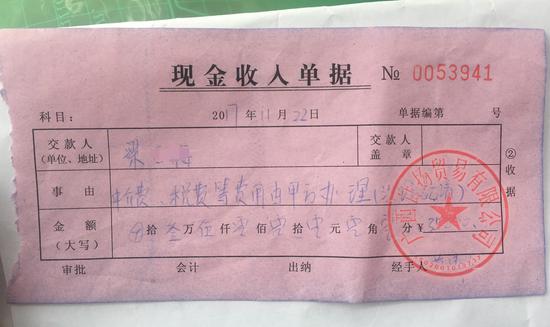 现金收入单据 № 0053941
科目: 2017年11月22日 单据编第 号
交款人
(单位、地址)
梁
交款人
盖章
事由
税费等费用由甲方办理
金额
(大写)
⊕拾叁万伍仟零佰零拾零元零角零分¥35
②收据
贸易有限公司
审批 会计 出纳 经手人